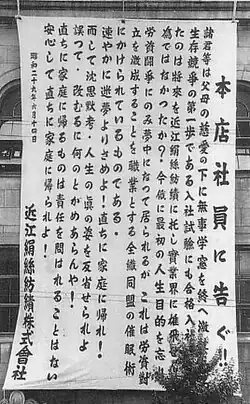 本店社員に告ぐ!!
諸君等は父母の慈愛の下に無事學窓を終へ激
生存競争の第一歩である入社試驗にも合格入社
たのは將來を近江絹絲紡績に託し實業界に雄飛
為ではなかつたか?今仮に最初の人生目的を忘
労資闘爭にのみ夢中になって居られるが これは労資對
立を激成することを職業とする全繊同盟の催眠術
にかけられているものである.
速やかに迷夢よりさめよ!直ちに家庭に帰れ!
而して沈思默考・人生の真の姿を反省せられよ
誤つて、改むるに何のとがめあらんや!
直ちに家庭に帰るものは責任を問はれることはない
安心して直ちに家庭に帰られよ.
昭和二十九年六月十四日
近江絹絲紡績株式會社